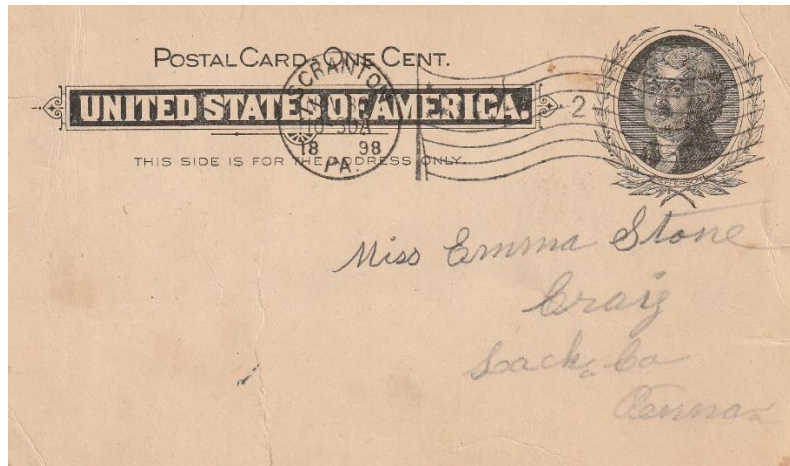 POSTAL CARD-ONE CENT.
UNITED STATES OF AMERICA.
THIS SIDE IS FOR THE ADDRESS ONLY.
SCRANTON
10-30A
18 98
PA.
2
Miss Emma Stone
Craig
Lack. Co
Penna